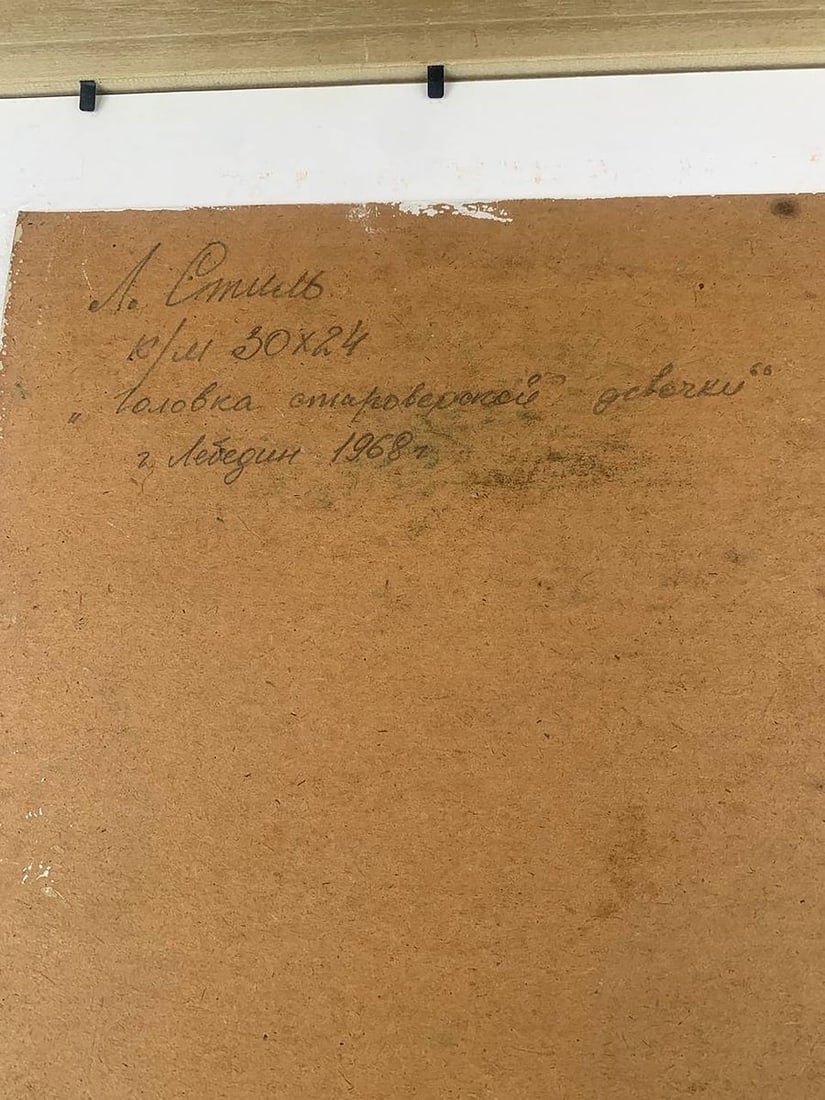 Л. Стиль
к/м 30х24
„Головка староверской девочки“
г. Лебедин 1968г